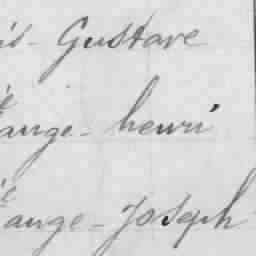 Gustave
ange - henri
ange - Joseph